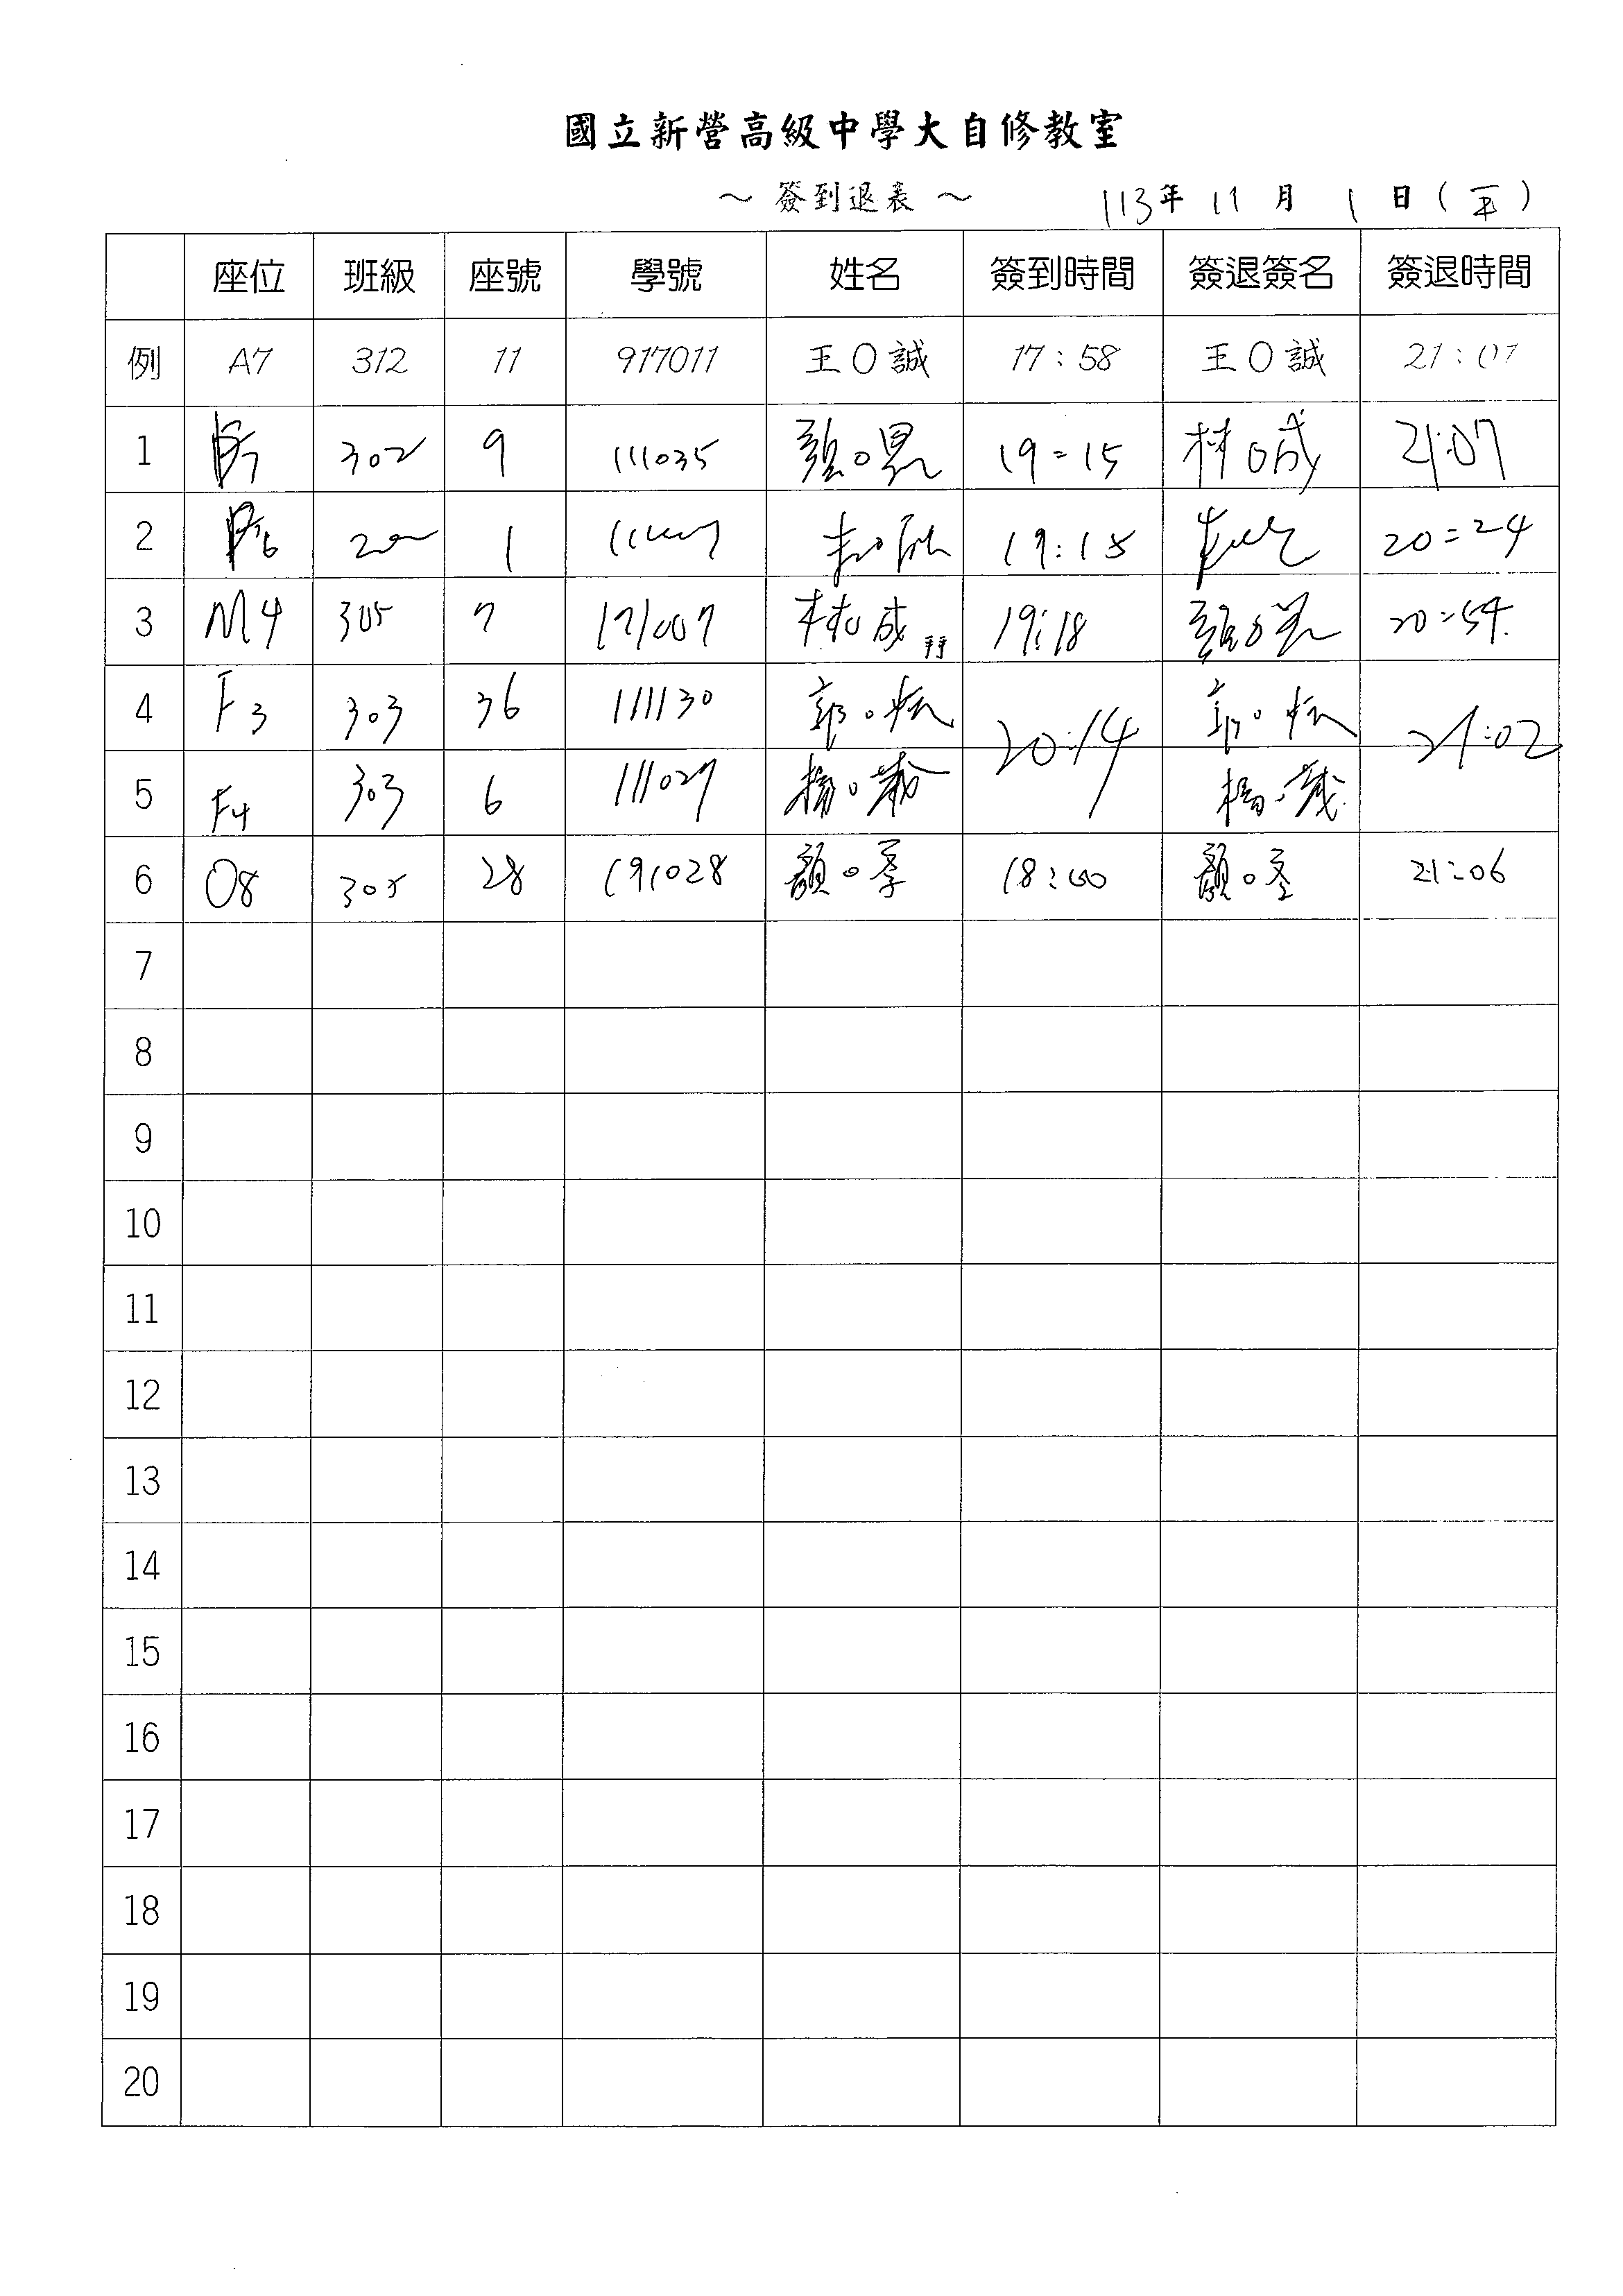 國立新營高級中學大自修教室
～ 簽到退表 ～ 113年 11 月 1 日 ( 五 )
座位 班級 座號 學號 姓名 簽到時間 簽退簽名 簽退時間
例 A7 312 11 917011 王○誠 17:58 王○誠 21:01
1 302 9 111035 19=15 林○成 21:07
2 1 19:18 20=24
3 M4 305 7 林○成 19:18 20=54.
4 F3 303 36 111130 郭○ 20:14 郭○ 21:02
5 F4 303 6 111027 楊○ 楊○
6 O8 305 28 191028 顏○ 18:00 顏○ 21:06
7
8
9
10
11
12
13
14
15
16
17
18
19
20